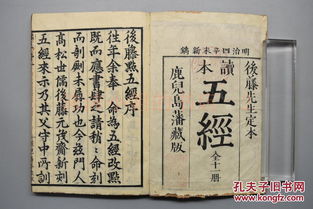 明治四辛未新鐫
後藤先生定本
讀本
五經 全十一册
鹿兒島藩藏版
後藤點五經序
往年余奉 命為五經改點
既而應書肆之請稍々命刻
而剞劂未竣功也今茲門人
高松世儒後藤元茂齋新刻
五經來示乃其父守中所訓